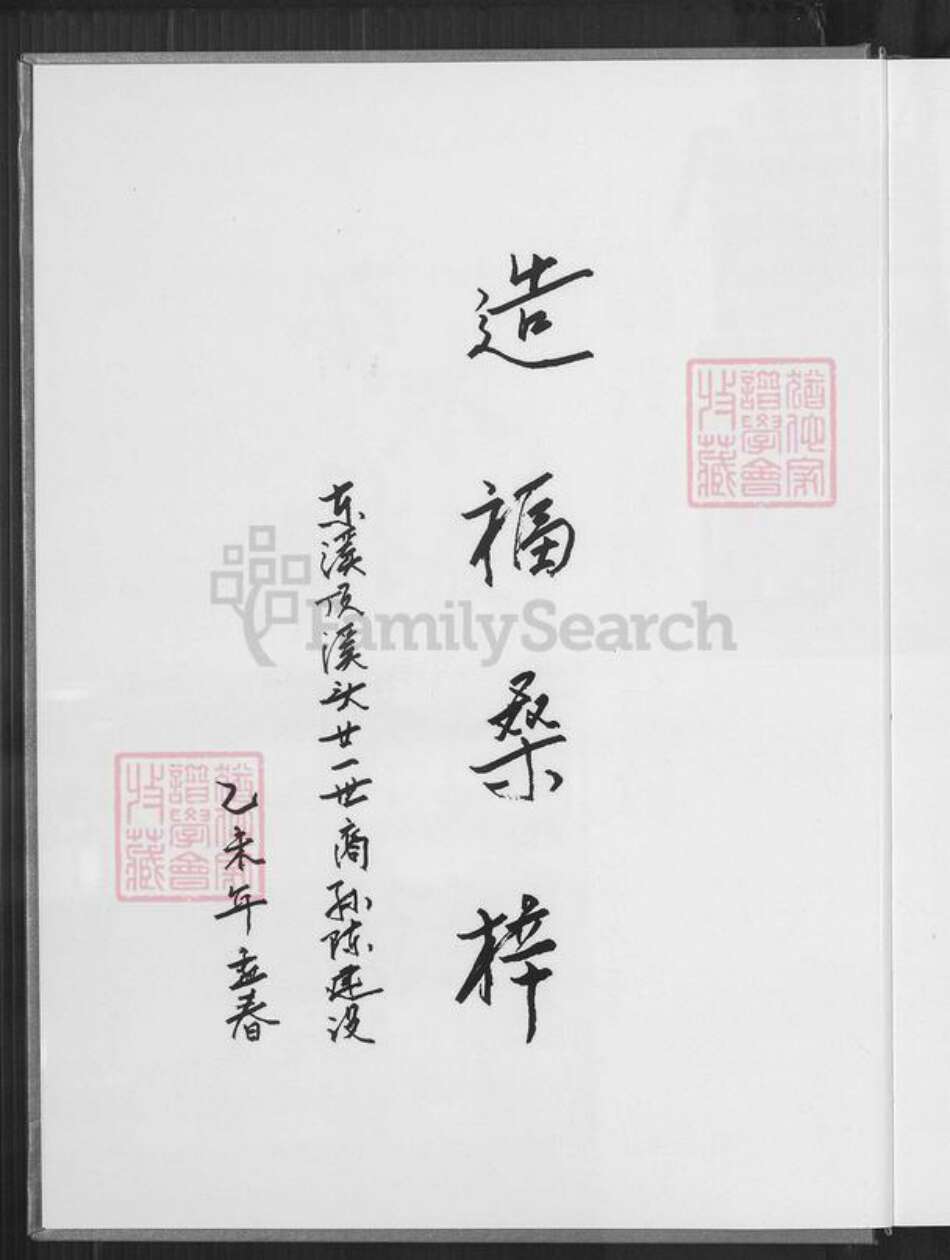 猶他家
譜學會
收藏
造福桑梓
东溪顶溪头廿一世裔孙陈建设
乙未年孟春
猶他家
譜學會
收藏
FamilySearch